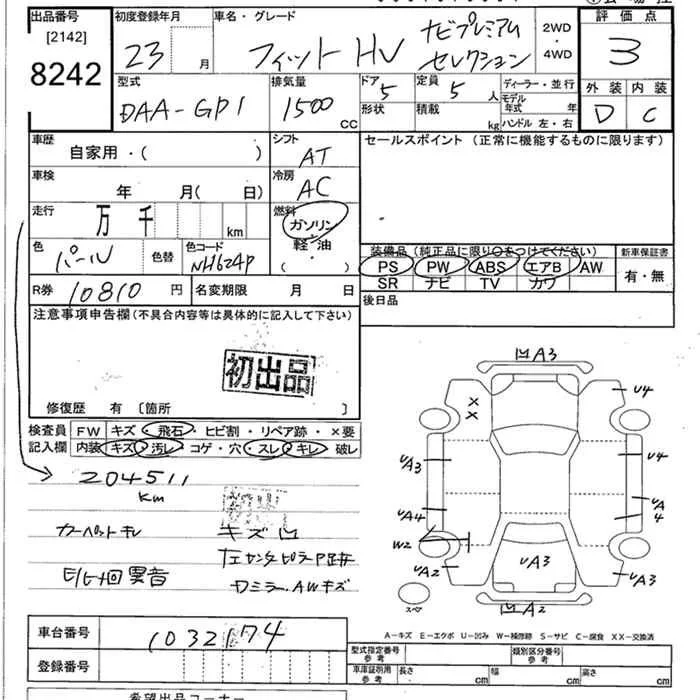 出品番号
[2142]
8242
初度登録年月
23 月
車名・グレード
フィット HV ナビプレミアム
セレクション
2WD
・
4WD
評価点
3
外装 内装
D C
型式
DAA-GP1
排気量
1500 CC
ドア 5
形状
定員 5 人
積載 kg
ディーラー・並行
モデル年式 年
ハンドル 左・右
車歴
自家用・( )
シフト
AT
車検
年 月(日)
冷房
AC
走行
万 千 km
燃料
ガソリン
軽・油
( ・ )
色
パール
色替
色コード
NH624P
R券 10810 円
名変期限 月 日
セールスポイント (正常に機能するものに限ります)
装備品 (純正品に限り○をつけてください)
PS PW ABS エアB AW
SR ナビ TV カワ
新車保証書
有・無
後日品
注意事項申告欄(不具合内容等は具体的に記入して下さい)
初出品
修復歴 有 〔箇所 〕
検査員
記入欄
FW キズ・飛石・ヒビ割・リペア跡・×要
内装 キズ・汚レ・コゲ・穴・スレ・キレ・破レ
204511
km
カーペットキレ
E/G廻異音
キズ凹
左センタピラーP跡
Dミラー.AWキズ
凹A3
U4
×
×
UA3
U4
UA4
UA
4
W2
UA2
UA3
UA3
スペア
凹A2
A-キズ E-エクボ U-凹み W-補修跡 S-サビ C-腐食 XX-交換済
車台番号
1032174
登録番号
型式指定番号
参考
類別区分番号
参考
車庫証明用
参考
長さ cm
幅 cm
高さ cm
希望出品コーナー